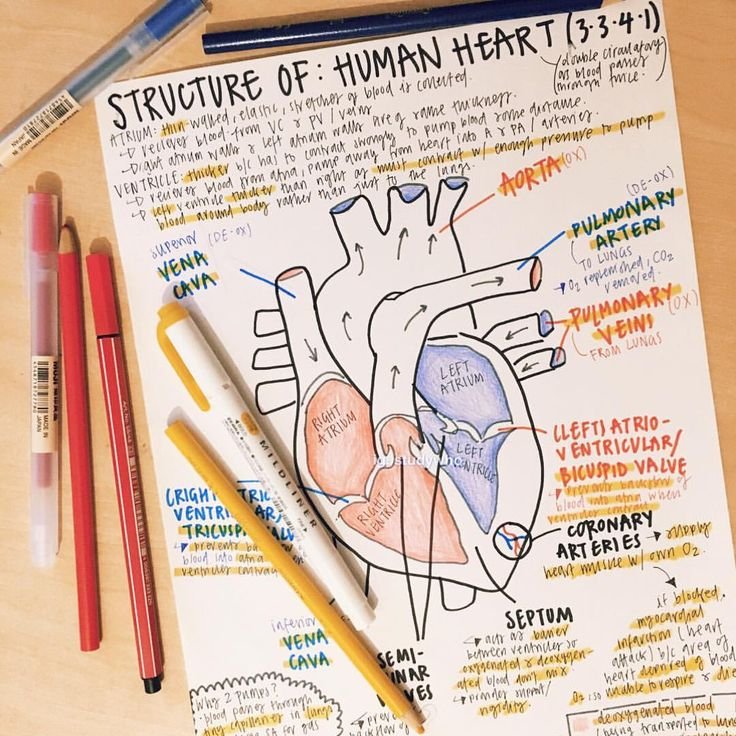 STRUCTURE OF: HUMAN HEART (3·3·4·1)
(double circulatory
as blood passes
through twice.)
ATRIUM: thin-walled, elastic, stretches as blood is collected.
receives blood from VC & PV / veins
right atrium walls & left atrium walls are of same thickness.
VENTRICLE: thicker b/c has to contract strongly to pump blood some distance.
receives blood from atria, pump away from heart into A & PA / arteries.
left ventricle thicker than right as must contract w/ enough pressure to pump
blood around body rather than just to the lungs.
AORTA (OX)
superior (DE-OX)
VENA
CAVA
(DE-OX)
PULMONARY
ARTERY
TO LUNGS
O2 replenished, CO2
removed.
PULMONARY (OX)
VEINS
FROM LUNGS
LEFT
ATRIUM
RIGHT
ATRIUM
LEFT
VENTRICLE
RIGHT
VENTRICLE
(LEFT) ATRIO-
VENTRICULAR/
BICUSPID VALVE
prevents backflow of
blood into atria when
ventricles contract
(RIGHT)
VENTRICULAR/
TRICUSPID VALVE
prevents
blood into atria
ventricles contract
CORONARY
ARTERIES → supply
heart muscle w/ own O2.
if blocked,
myocardial
infarction (heart
attack) b/c area of
heart deprived of blood
O2 so unable to respire & dies
SEPTUM
act as barrier
between ventricles so
oxygenated & deoxygen-
ated blood don't mix
provides support/
rigidity.
inferior
VENA
CAVA
SEMI-
LUNAR
VALVES
prevent
backflow
Why 2 pumps?
blood passes through
tiny capillaries in lungs
SA for gas
deoxygenated blood
(being transported to lungs
MILDLINER
MADE IN
JAPAN
MADE IN
JAPAN